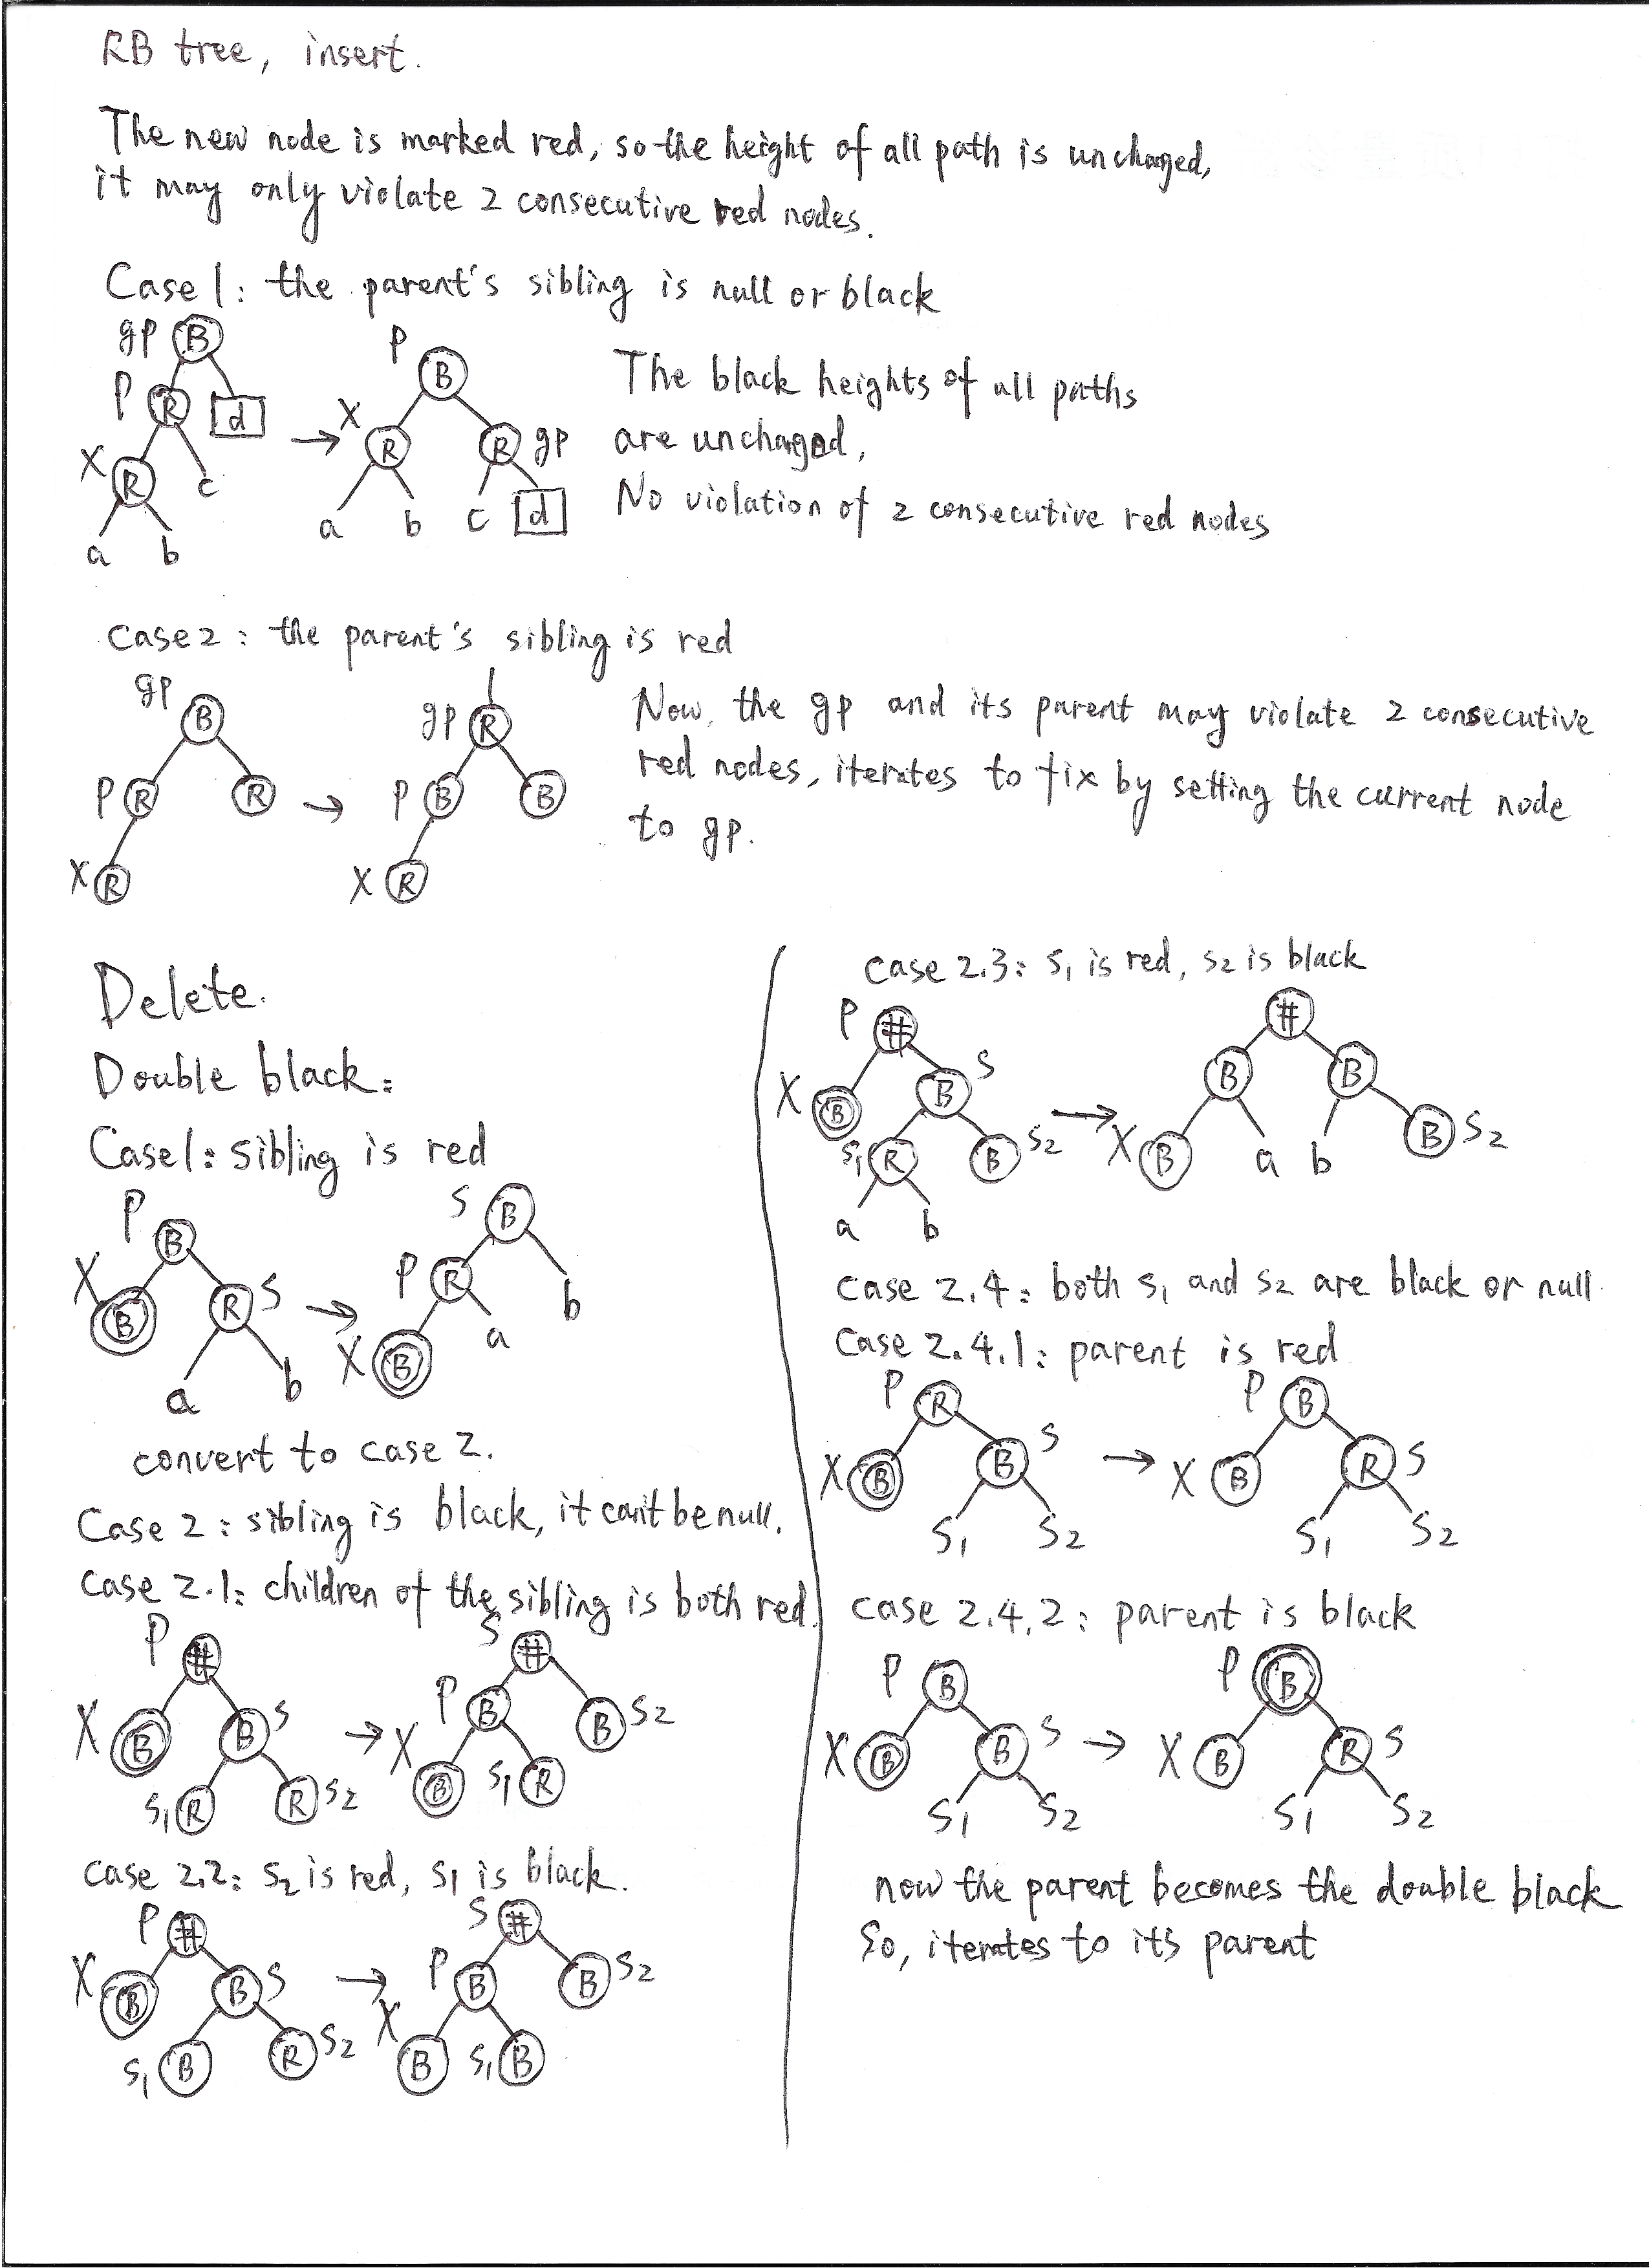 RB tree, insert.
The new node is marked red, so the height of all path is unchaged,
it may only violate 2 consecutive red nodes.
Case 1: the parent's sibling is null or black
gp B
P R d
X R c
a b
→
P B
X R R gp
a b c d
The black heights of all paths
are unchaged,
No violation of 2 consecutive red nodes
case 2: the parent's sibling is red
gp B
P R R
X R
→
gp R
P B B
X R
Now, the gp and its parent may violate 2 consecutive
red nodes, iterates to fix by setting the current node
to gp.
Delete.
Double black:
Case 1: sibling is red
P B
X B R S
a b
→
S B
P R b
X B a
convert to case 2.
Case 2: sibling is black, it can't be null.
Case 2.1: children of the sibling is both red.
P #
X B B S
S1 R R S2
→
S #
P B B S2
X B S1 R
case 2.2: S2 is red, S1 is black.
P #
X B B S
S1 B R S2
→
S #
P B B S2
X B S1 B
case 2.3: S1 is red, S2 is black
P #
X B B S
S1 R B S2
a b
→
#
B B
X B a b B S2
case 2.4: both S1 and S2 are black or null
case 2.4.1: parent is red
P R
X B B S
S1 S2
→
P B
X B R S
S1 S2
case 2.4.2: parent is black
P B
X B B S
S1 S2
→
P B
X B R S
S1 S2
now the parent becomes the double black
So, iterates to its parent